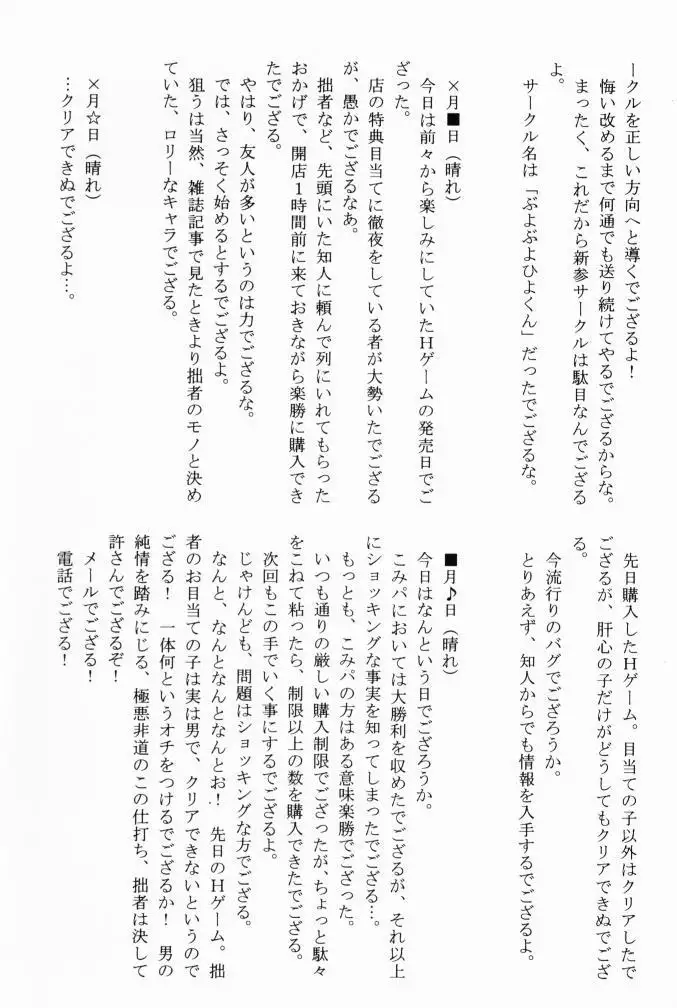 ークルを正しい方向へと導くでござるよ！
悔い改めるまで何通でも送り続けてやるでござるからな。
まったく、これだから新参サークルは駄目なんでござる
よ。
サークル名は「ぷよぷよひよくん」だったでござるな。
×月■日（晴れ）
今日は前々から楽しみにしていたHゲームの発売日でご
ざった。
店の特典目当てに徹夜をしている者が大勢いたでござる
が、愚かでござるなあ。
拙者など、先頭にいた知人に頼んで列にいれてもらった
おかげで、開店１時間前に来ておきながら楽勝に購入でき
たでござる。
やはり、友人が多いというのは力でござるな。
では、さっそく始めるとするでござるよ。
狙うは当然、雑誌記事で見たときより拙者のモノと決め
ていた、ロリーなキャラでござる。
×月☆日（晴れ）
…クリアできぬでござるよ…。
先日購入したHゲーム。目当ての子以外はクリアしたで
ござるが、肝心の子だけがどうしてもクリアできぬでござ
る。
今流行りのバグでござろうか。
とりあえず、知人からでも情報を入手するでござるよ。
■月♪日（晴れ）
今日はなんという日でござろうか。
こみパにおいては大勝利を収めたでござるが、それ以上
にショッキングな事実を知ってしまったでござる…。
もっとも、こみパの方はある意味楽勝でござった。
いつも通りの厳しい購入制限でござったが、ちょっと駄々
をこねて粘ったら、制限以上の数を購入できたでござる。
次回もこの手でいく事にするでござるよ。
じゃけんども、問題はショッキングな方でござる。
なんと、なんとなんとなんとお！　先日のHゲーム。拙
者のお目当ての子は実は男で、クリアできないというので
ござる！　一体何というオチをつけるでござるか！　男の
純情を踏みにじる、極悪非道のこの仕打ち、拙者は決して
許さんでござるぞ！
メールでござる！
電話でござる！